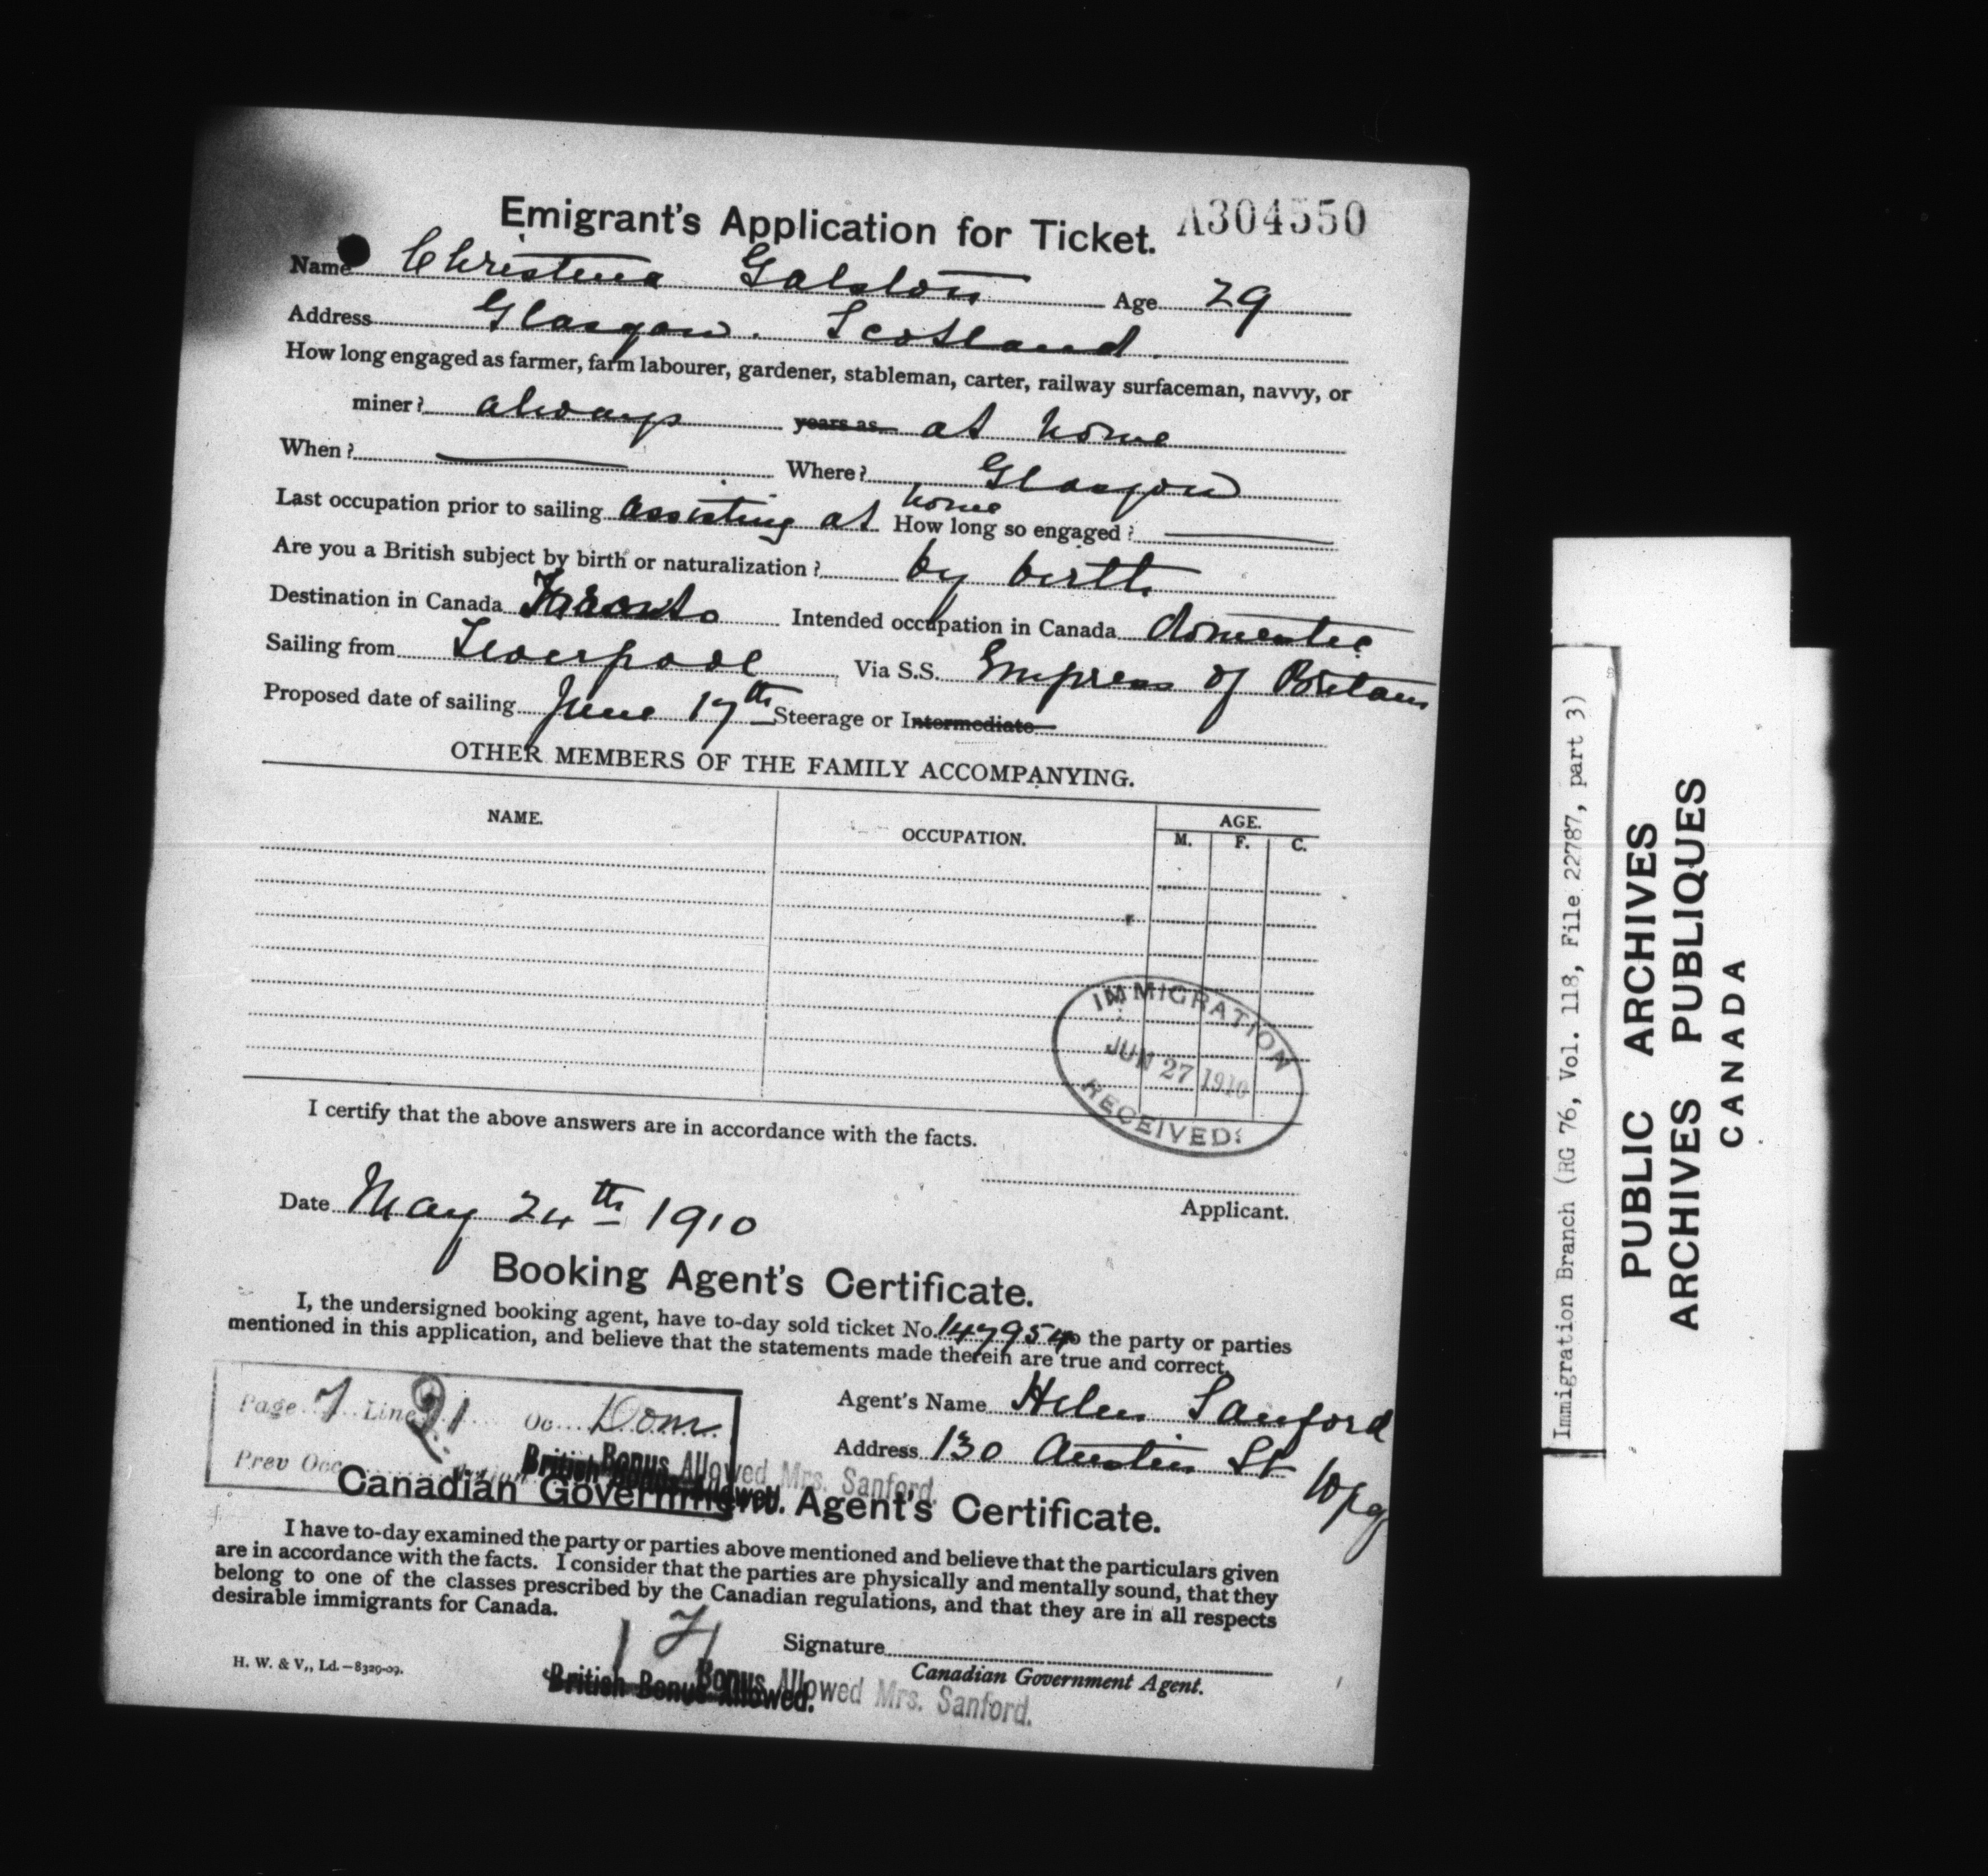 Emigrant's Application for Ticket. A304550
Name Christina Galston Age 29
Address Glasgow. Scotland.
How long engaged as farmer, farm labourer, gardener, stableman, carter, railway surfaceman, navvy, or
miner? always years as at home
When? Where? Glasgow
Last occupation prior to sailing assisting at home How long so engaged?
Are you a British subject by birth or naturalization? by birth
Destination in Canada Toronto Intended occupation in Canada domestic
Sailing from Liverpool Via S.S. Empress of Britain
Proposed date of sailing June 17th Steerage or Intermediate
OTHER MEMBERS OF THE FAMILY ACCOMPANYING.
NAME. OCCUPATION. AGE.
M. F. C.
IMMIGRATION
JUN 27 1910
RECEIVED.
I certify that the above answers are in accordance with the facts.
Date May 24th 1910
Applicant.
Booking Agent's Certificate.
I, the undersigned booking agent, have to-day sold ticket No. 147954 to the party or parties
mentioned in this application, and believe that the statements made therein are true and correct.
Agent's Name Helen Sanford
Address 130 Austin St Wpg
Page 7 Line 21 Oc Dom.
Prev Occ
British Bonus Allowed.
Bonus Allowed Mrs. Sanford.
Canadian Government Agent's Certificate.
I have to-day examined the party or parties above mentioned and believe that the particulars given
are in accordance with the facts. I consider that the parties are physically and mentally sound, that they
belong to one of the classes prescribed by the Canadian regulations, and that they are in all respects
desirable immigrants for Canada.
Signature
Canadian Government Agent.
H. W. & V., Ld.—8329-09.
British Bonus Allowed.
Bonus Allowed Mrs. Sanford.
Immigration Branch (RG 76, Vol. 118, File 22787, part 3)
PUBLIC ARCHIVES
ARCHIVES PUBLIQUES
CANADA